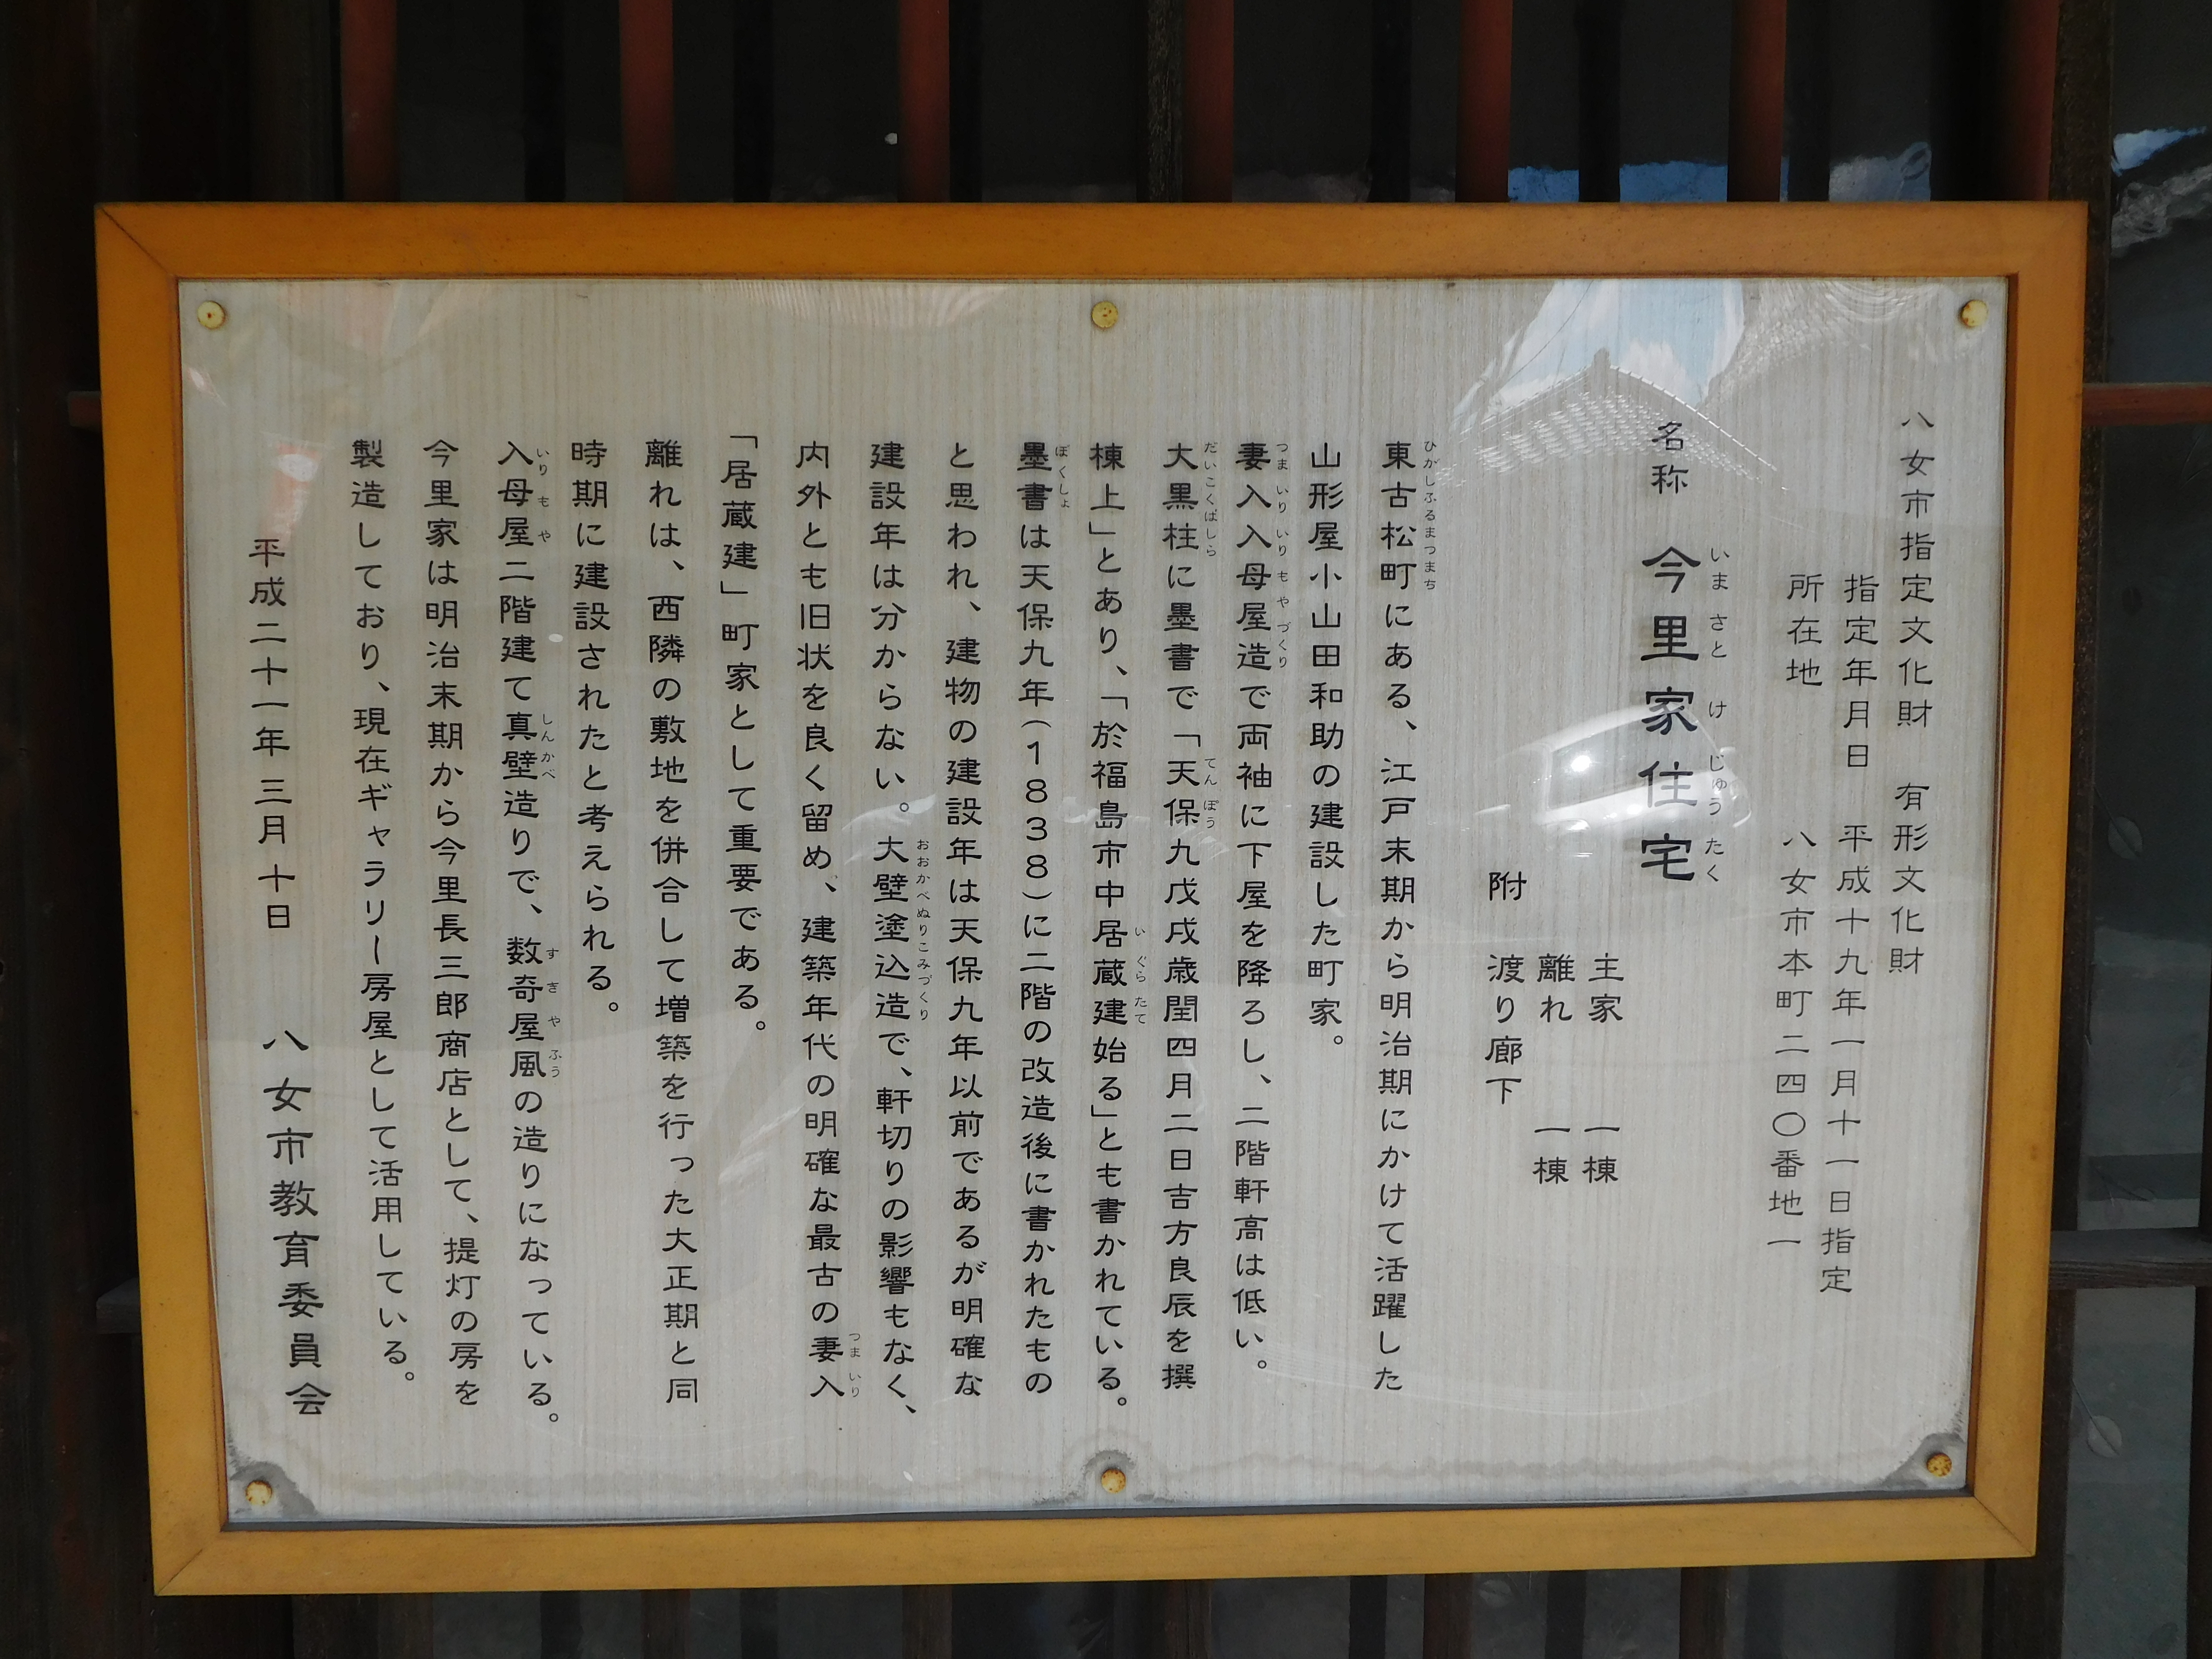 八女市指定文化財　有形文化財
指定年月日　平成十九年一月十一日指定
所在地　八女市本町二四〇番地一
名称　今里家住宅
いまさとけじゅうたく
主家　一棟
離れ　一棟
附　渡り廊下
ひがしふるまつまち
東古松町にある、江戸末期から明治期にかけて活躍した
山形屋小山田和助の建設した町家。
つまいりいりもやづくり
妻入入母屋造で両袖に下屋を降ろし、二階軒高は低い。
だいこくばしら　てんぽう
大黒柱に墨書で「天保九戊戌歳閏四月二日吉方良辰を撰
いぐらたて
棟上」とあり、「於福島市中居蔵建始る」とも書かれている。
ぼくしょ
墨書は天保九年(1838)に二階の改造後に書かれたもの
と思われ、建物の建設年は天保九年以前であるが明確な
おおかべぬりこみづくり
建設年は分からない。大壁塗込造で、軒切りの影響もなく、
つまいり
内外とも旧状を良く留め、建築年代の明確な最古の妻入
「居蔵建」町家として重要である。
離れは、西隣の敷地を併合して増築を行った大正期と同
時期に建設されたと考えられる。
いりもや　しんかべ　すきやふう
入母屋二階建て真壁造りで、数奇屋風の造りになっている。
今里家は明治末期から今里長三郎商店として、提灯の房を
製造しており、現在ギャラリー房屋として活用している。
平成二十一年三月十日　八女市教育委員会